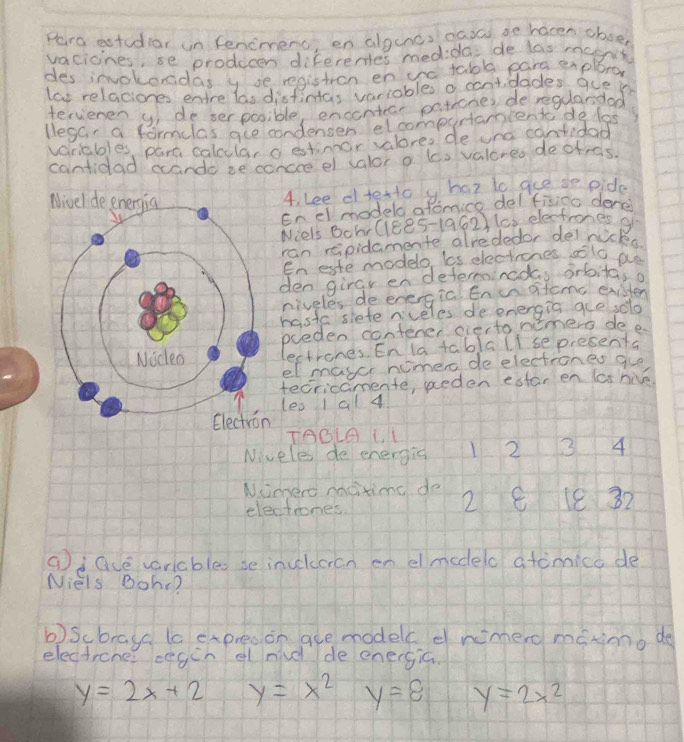 Para estudiar un fenómeno, en algunos casos se hacen obser
vaciones, se producen diferentes medidas de las magnitu
des involucradas y se registran en una tabla para explorar
las relaciones entre las distintas variables o cantidades que in
tervienen y, de ser posible, encontrar patrones de regularidad y
llegar a fórmulas que condensen el comportamiento de las
variables para calcular o estimar valores de una cantidad
cantidad cuando se conoce el valor o los valores de otras.
Nivel de energía
Núcleo
Electrón
4. Lee el texto y haz lo que se pide
En el modelo atómico del físico danés
Niels Bohr (1885-1962) los electrones gi
ran rápidamente alrededor del núcleo.
En este modelo, los electrones sólo pue
den girar en determinadas órbitas, o
niveles de energía. En un átomo existen
hasta siete niveles de energía que solo
pueden contener cierto número de e
lectrones. En la tabla 1.1 se presenta
el mayor número de electrones que,
teóricamente, pueden estar en los nive
les 1 al 4
TABLA 1.1
Niveles de energía 1 2 3 4
Número máximo de
electrones. 2 8 18 32
a) ¿Qué variables se involucran en el modelo atómico de
Niels Bohr?
b) Subraya la expresión que modela el número máximo de
electrones según el nivel de energía.
y = 2x + 2 y = x² y = 8 y = 2x²